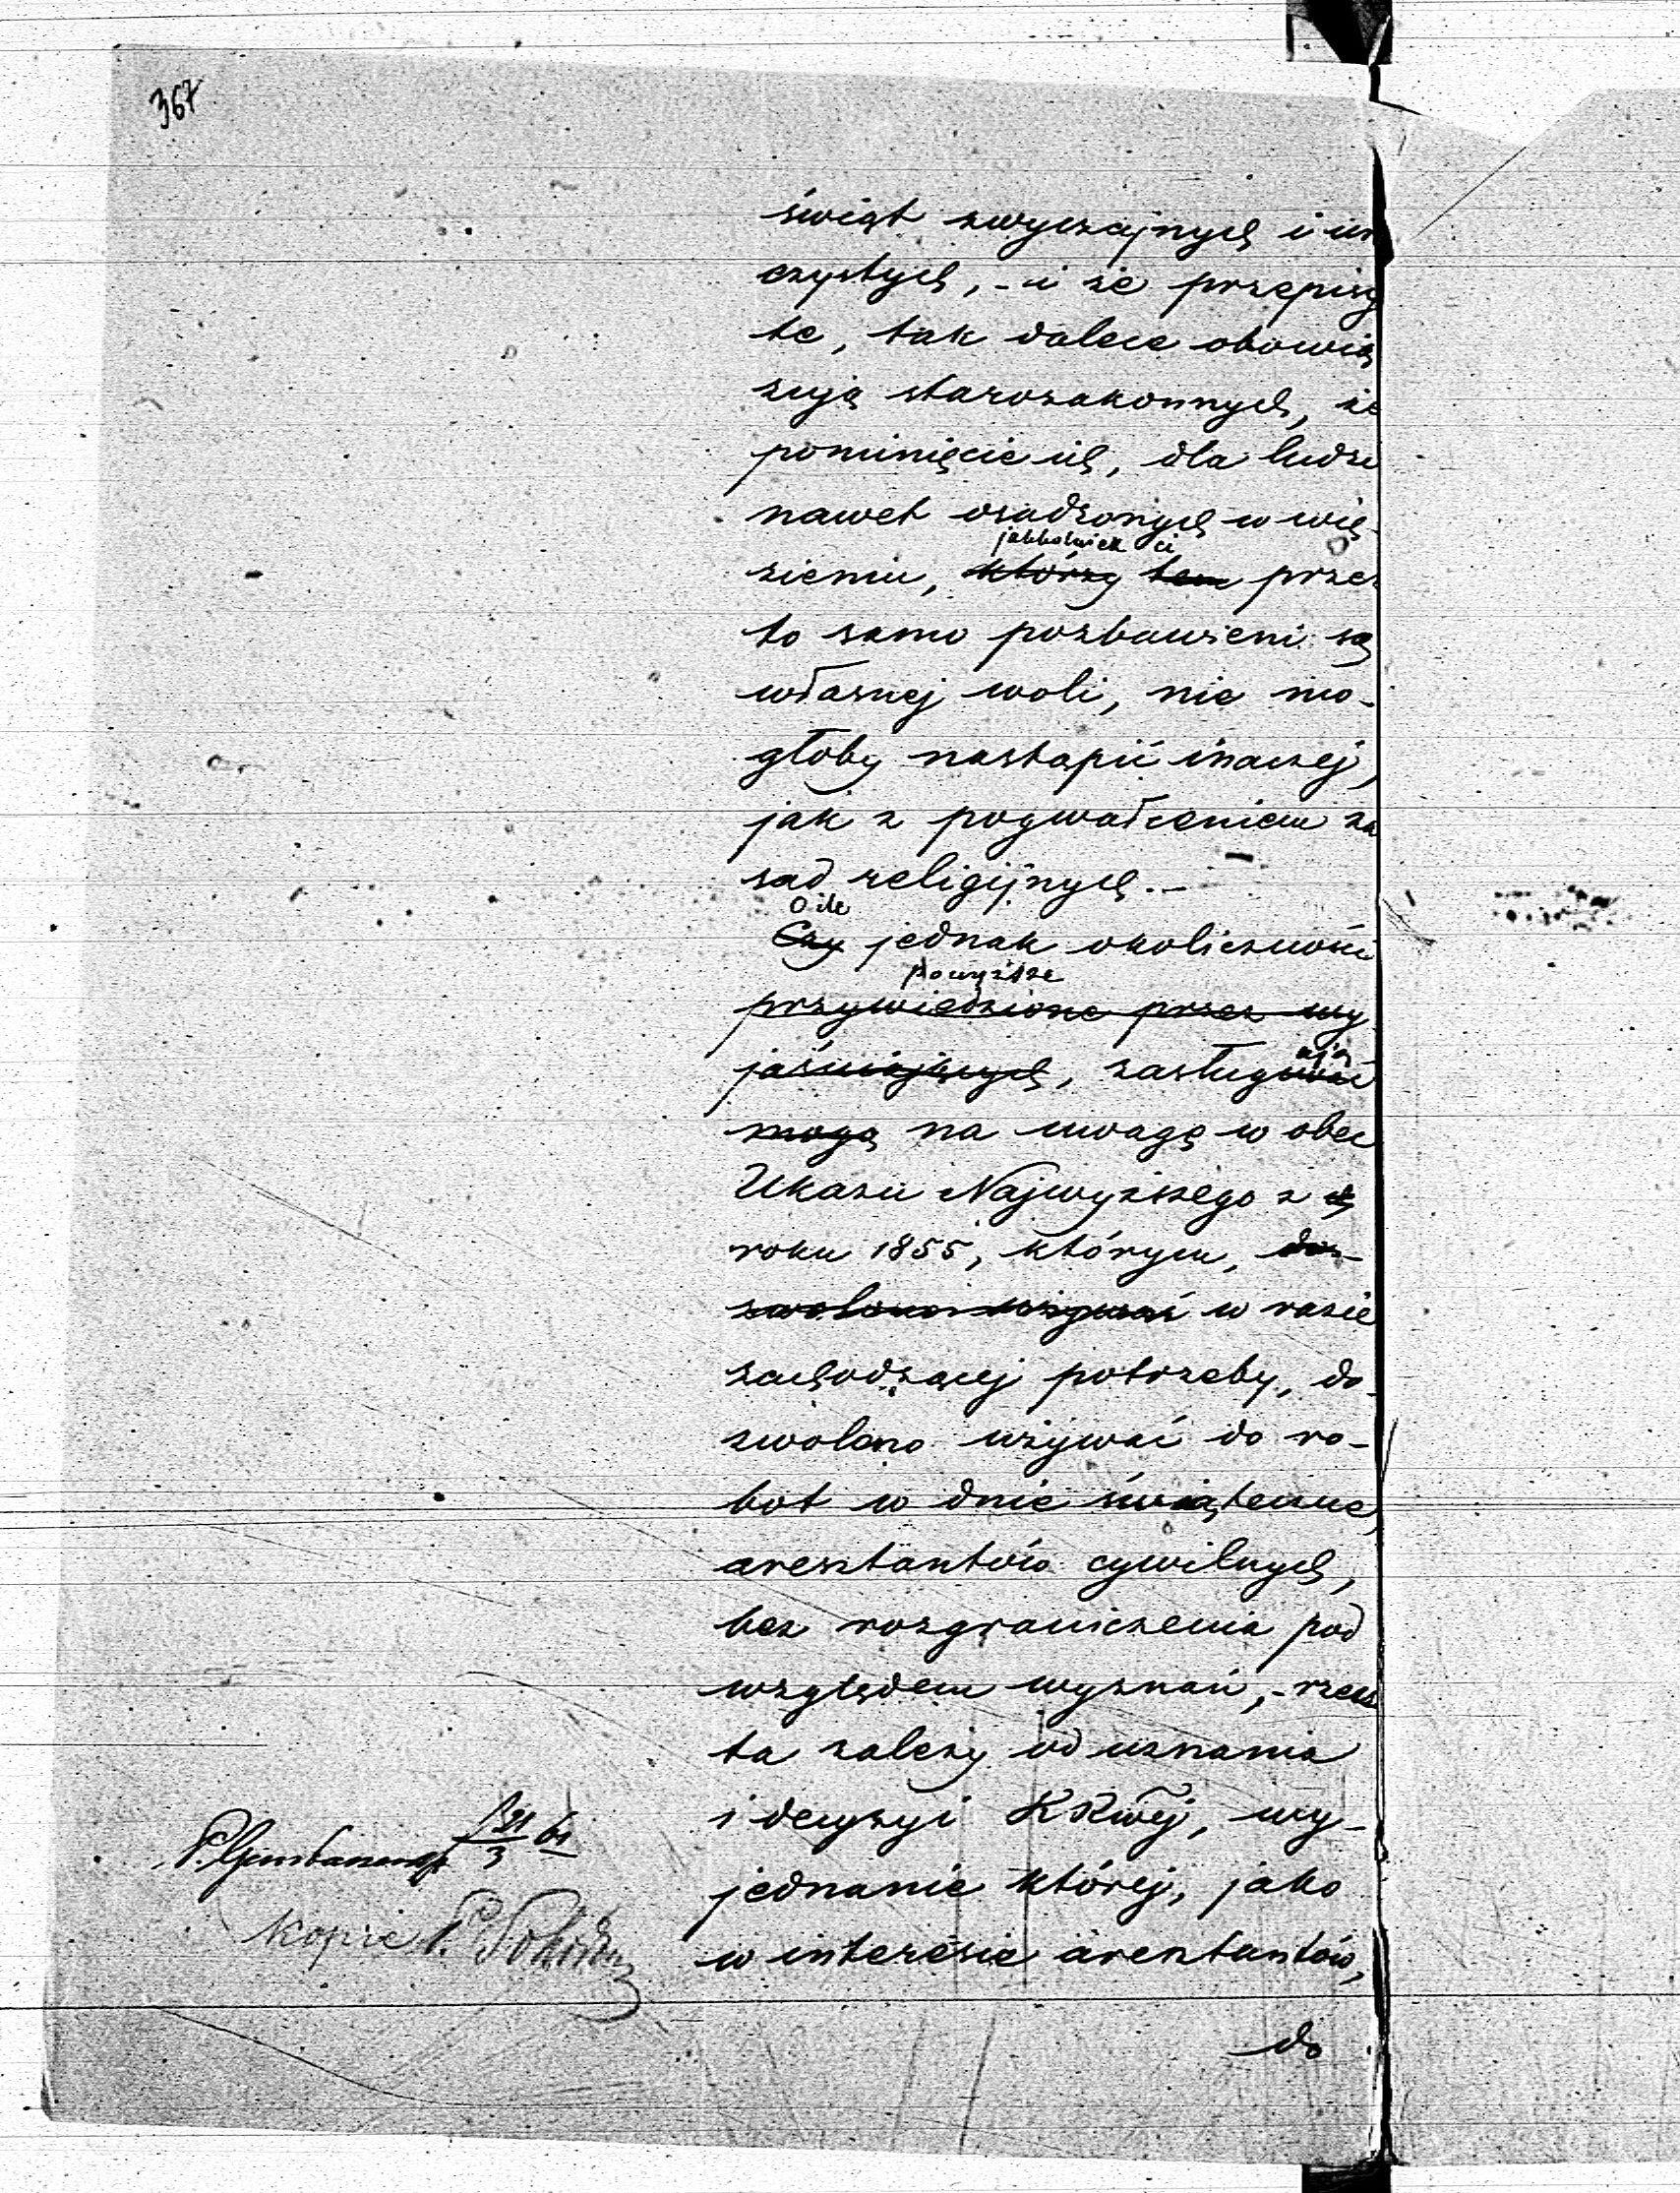 367
świąt zwyczajnych i uro
czystych, - i że przepisy
te, tak dalece obowią
zują starozakonnych, że
pominięcie ich, dla ludzi
nawet osadzonych w wię-
jakkolwiek ci
zieniu, którzy tem przez
to samo pozbawieni są
własnej woli, nie mo-
głoby nastąpić inaczej,
jak z pogwałceniem za
sad religijnych. -
O ile
Czy jednak okoliczności
powyższe
przywiedzione przez wy
ują
jaśniających, zasługiwać
mogą na uwagę w obec
Ukazu Najwyższego z
roku 1855, którym, do-
zwolono używać w razie
zachodzącej potrzeby, do-
zwolono używać do ro-
bot w dnie świąteczne,
aresztantów cywilnych,
bez rozgraniczenia pod
względem wyznań, - rzecz
ta zależy od uznania
i decyzyi KRwej, wy-
jednanie której, jako
w interesie aresztantów,
do
21/3 61
kopie P.